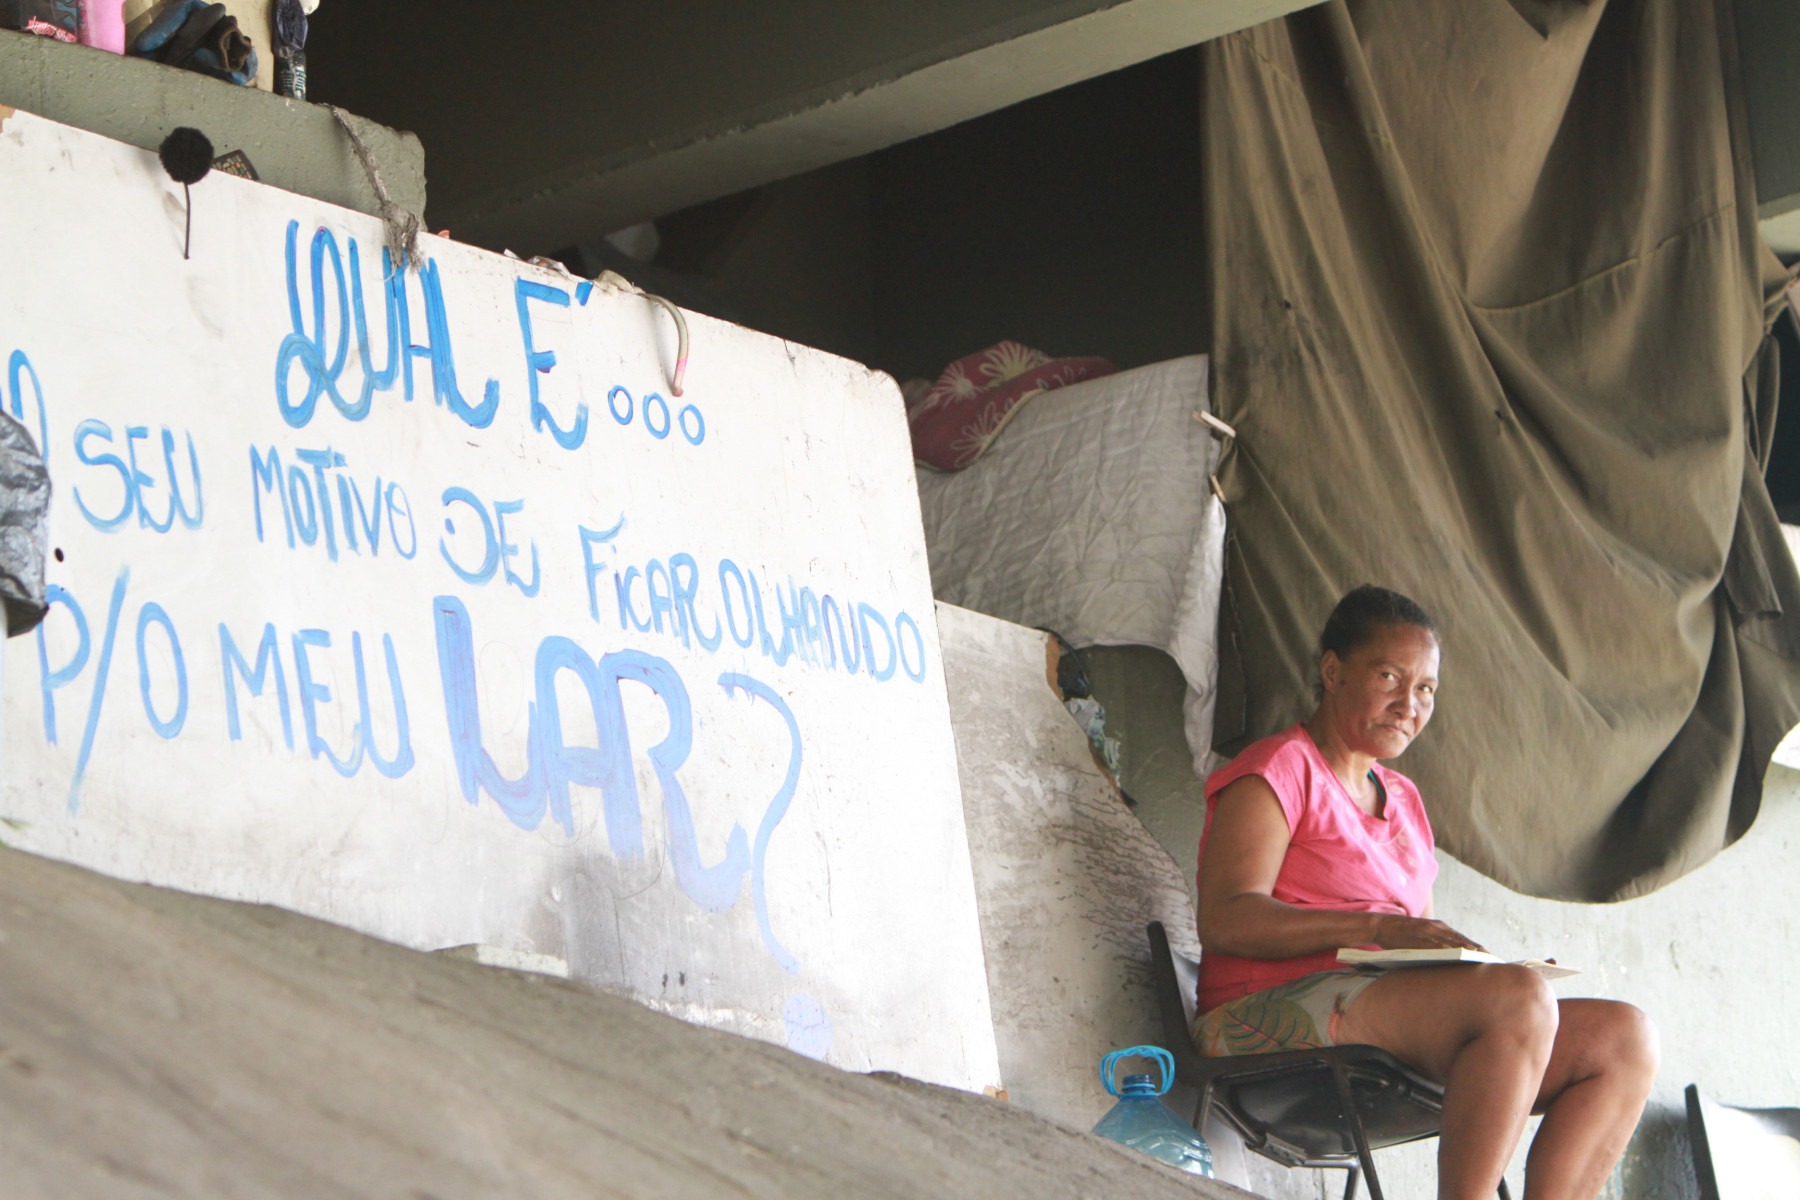 QUAL É...
O SEU MOTIVO DE FICAR OLHANDO
P/O MEU LAR?